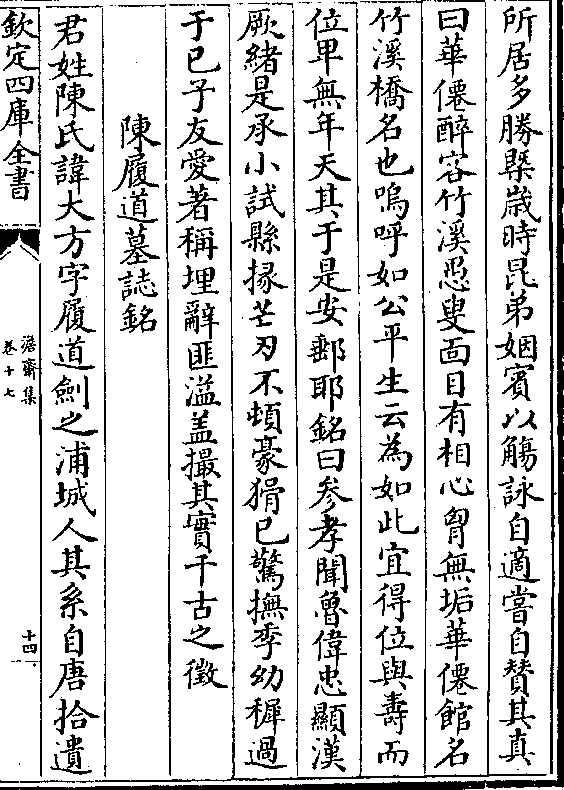 所居多勝槩歲時昆弟姻賓以觴詠自適嘗自贊其真
曰華僊醉容竹溪愚叟面目有相心胷無垢華僊館名
竹溪橋名也嗚呼如公平生云為如此宜得位與壽而
位卑無年天其于是安郵耶銘曰参孝聞魯偉忠顯漢
厥緒是承小試縣掾芒刃不頓豪猾已驚撫季幼穉過
于已子友愛著稱埋辭匪溢盖撮其實千古之徵
陳履道墓誌銘
君姓陳氏諱大方字履道劍之浦城人其系自唐拾遺
欽定四庫全書
澹齋集
卷十七
十四